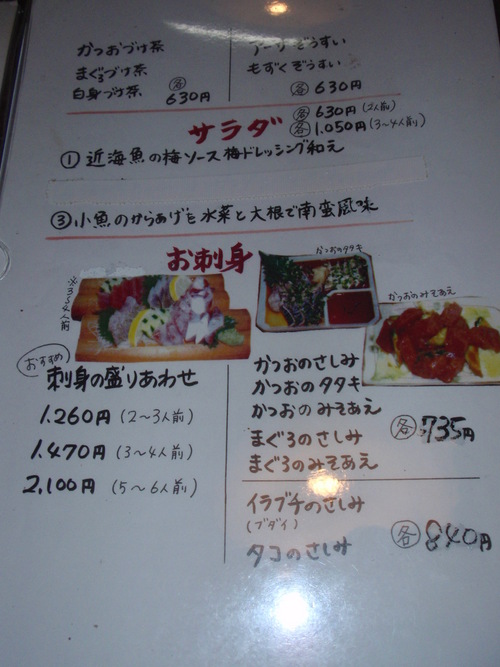 かつおづけ茶
まぐろづけ茶
白身づけ茶
各 630円
アーサぞうすい
もずくぞうすい
各 630円
サラダ
各 630円(2人前)
各 1.050円(3〜4人前)
① 近海魚の梅ソース梅ドレッシング和え
③ 小魚のからあげを水菜と大根で南蛮風味
お刺身
※3〜4人前
かつおのタタキ
かつおのみそあえ
おすすめ
刺身の盛りあわせ
1.260円(2〜3人前)
1.470円(3〜4人前)
2.100円(5〜6人前)
かつおのさしみ
かつおのタタキ
かつおのみそあえ
まぐろのさしみ
まぐろのみそあえ
各 735円
イラブチのさしみ
(ブダイ)
タコのさしみ
各 840円